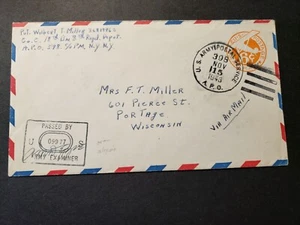 Pvt. Wilbert F. Miller
Co. C. 19th Bn 7th Repl. Depot.
A.P.O. 578 % P.M. N.Y. N.Y.
U.S. ARMY POSTAL SERVICE
NOV
15
1943
A.P.O.
6¢
VIA AIR MAIL
Mrs F. T. Miller
601 Pierce St.
Portage
Wisconsin
PASSED BY
U S
ARMY EXAMINER